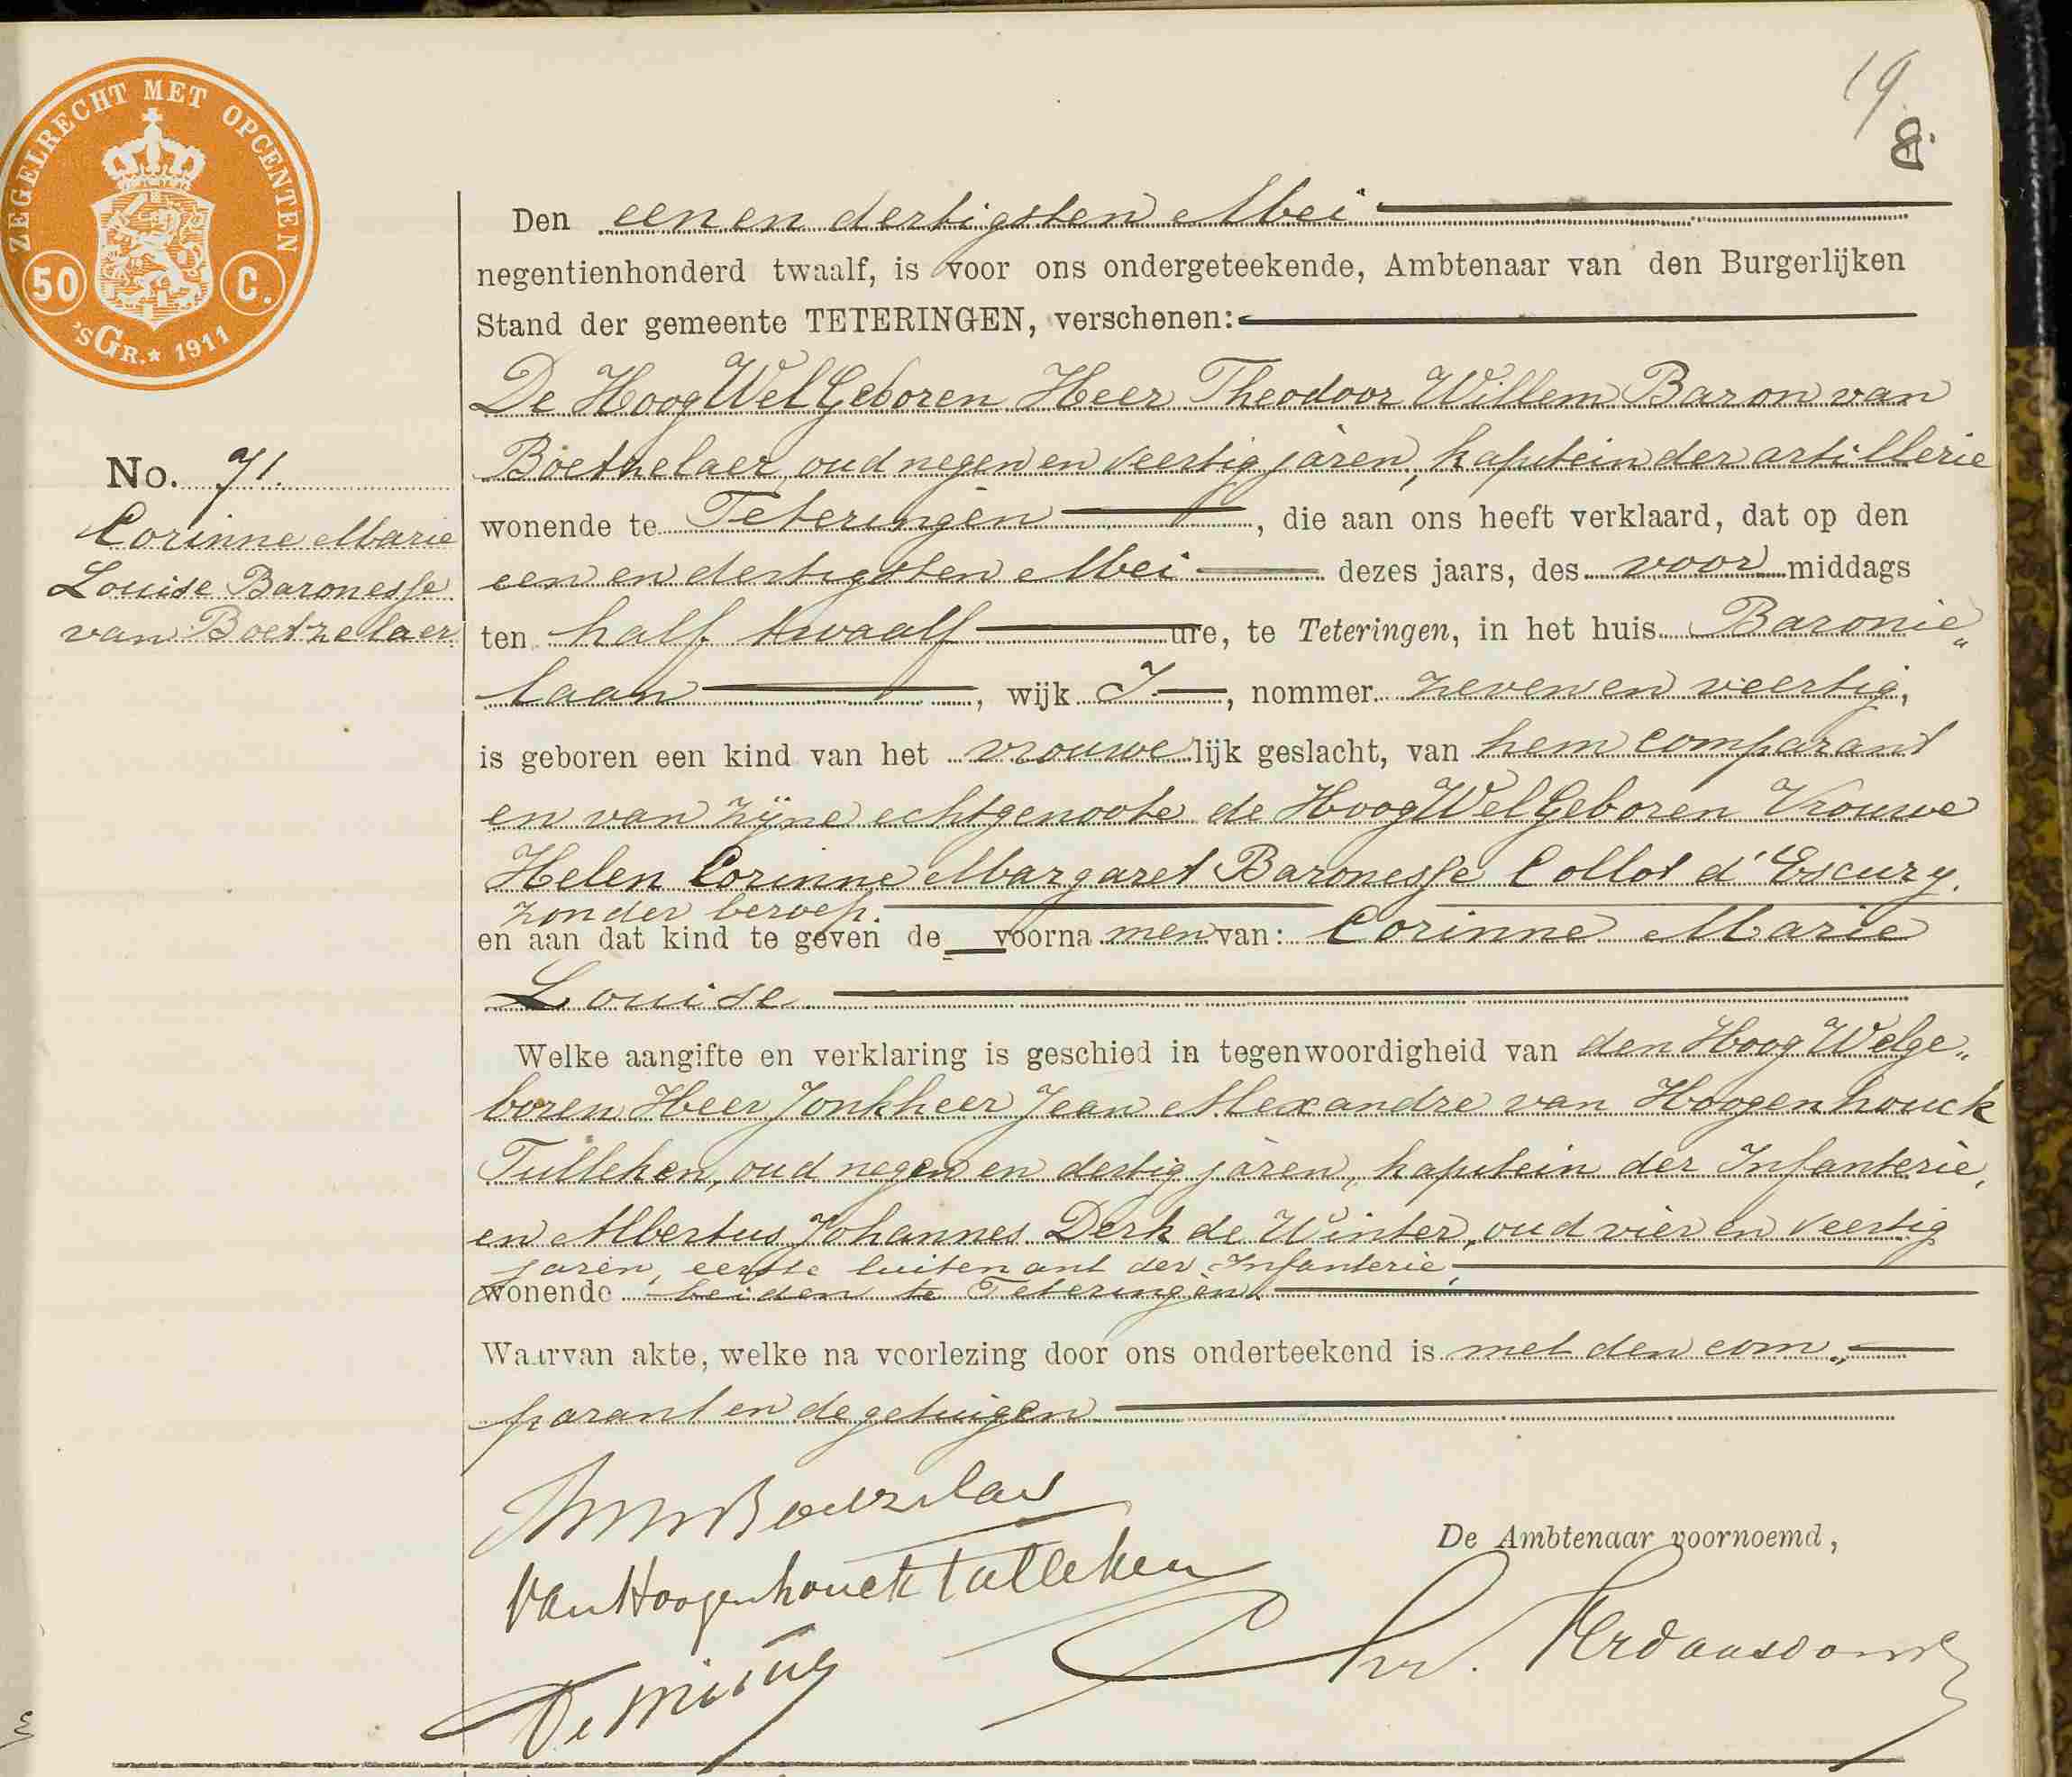 ZEGELRECHT MET OPCENTEN
50 C.
'S GR.* 1911
19
8.
No. 71.
Corinne Marie
Louise Baronesse
van Boetzelaer.
Den een en dertigsten Mei
negentienhonderd twaalf, is voor ons ondergeteekende, Ambtenaar van den Burgerlijken
Stand der gemeente TETERINGEN, verschenen:
De HoogWelGeboren Heer Theodoor Willem Baron van
Boetzelaer, oud negen en veertig jaren, kapitein der artillerie
wonende te Teteringen, die aan ons heeft verklaard, dat op den
een en dertigsten Mei dezes jaars, des voormiddags
ten half twaalf ure, te Teteringen, in het huis Baronie„
laan, wijk I, nommer zeven en veertig,
is geboren een kind van het vrouwelijk geslacht, van hem comparant
en van zijne echtgenoote de HoogWelGeboren Vrouwe
Helen Corinne Margaret Baronesse Collot d'Escury.
zonder beroep.
en aan dat kind te geven de voornamen van: Corinne Marie
Louise
Welke aangifte en verklaring is geschied in tegenwoordigheid van den HoogWelge„
boren Heer Jonkheer Jean Alexandre van Hoogenhouck
Tulleken, oud negen en dertig jaren, kapitein der Infanterie,
en Albertus Johannes Derk de Winter, oud vier en veertig
jaren, eerste luitenant der Infanterie,
wonende beiden te Teteringen.
Waarvan akte, welke na voorlezing door ons onderteekend is met den com„
parant en de getuigen
Boetzelaer
van Hoogenhouck Tulleken
De Winter
De Ambtenaar voornoemd,
Chr.